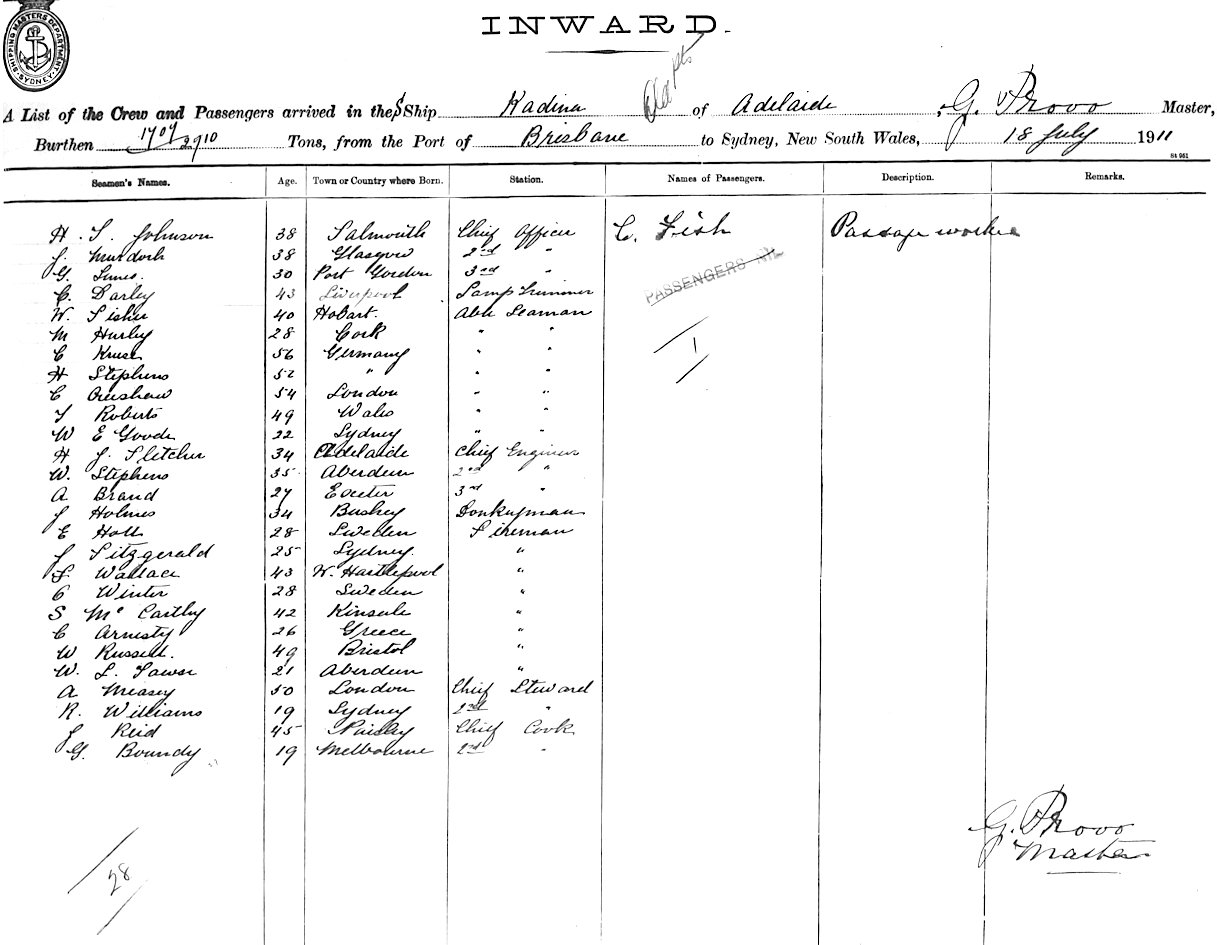 SHIPPING MASTERS DEPARTMENT. SYDNEY.
INWARD.
A List of the Crew and Passengers arrived in the S Ship Kadina of Adelaide, G. Provo Master,
Burthen 1707 2910 Tons, from the Port of Brisbane to Sydney, New South Wales, 18 July 1911
St 951
Seamen's Names. Age. Town or Country where Born. Station. Names of Passengers. Description. Remarks.
H. S. Johnson 38 Falmouth Chief Officer C. Fish Passage worker
J. Murdoch 38 Glasgow 2nd "
G. Innes. 30 Port Gordon 3rd "
PASSENGERS NIL
C. Darley 43 Liverpool Lamp Trimmer
W. Fisher 40 Hobart. Able Seaman
M Hurley 28 Cork " "
1
C Kruse 56 Germany " "
H Stephens 52 " " "
C Crenshaw 54 London " "
T Roberts 49 Wales " "
W E Goode 22 Sydney " "
H J. Fletcher 34 Adelaide Chief Engineer
W. Stephens 35 Aberdeen 2nd "
A Brand 27 Exeter 3rd "
J Holmes 34 Bushey Donkeyman
E Holt 28 Sweden Fireman
J Fitzgerald 25 Sydney. "
F Wallace 43 W. Hartlepool "
C Winter 28 Sweden "
S McCarthy 42 Kinsale "
C Arnesty 26 Greece "
W Russell. 49 Bristol "
W. L. Fawse 21 Aberdeen "
A Measey 50 London Chief Steward
R. Williams 19 Sydney 2nd "
J Reid 45 Paisley Chief Cook
G. Boundy 19 Melbourne 2nd "
G. Provo
Master
28